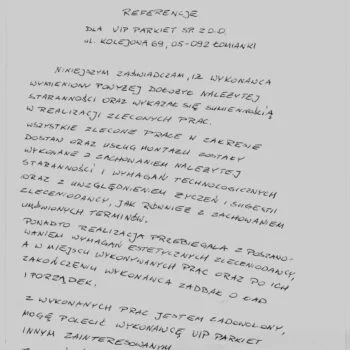 REFERENCJE
DLA VIP PARKIET SP. Z O.O.
ul. KOLEJOWA 69, 05-092 ŁOMIANKI
NINIEJSZYM ZAŚWIADCZAM, IŻ WYKONAWCA
WYMIENIONY POWYŻEJ DOŁOŻYŁ NALEŻYTEJ
STARANNOŚCI ORAZ WYKAZAŁ SIĘ SUMIENNOŚCIĄ
W REALIZACJI ZLECONYCH PRAC.
WSZYSTKIE ZLECONE PRACE W ZAKRESIE
DOSTAW ORAZ USŁUG MONTAŻU ZOSTAŁY
WYKONANE Z ZACHOWANIEM NALEŻYTEJ
STARANNOŚCI I WYMAGAŃ TECHNOLOGICZNYCH
ORAZ Z UWZGLĘDNIENIEM ŻYCZEŃ I SUGESTII
ZLECENIODAWCY, JAK RÓWNIEŻ Z ZACHOWANIEM
UMÓWIONYCH TERMINÓW.
PONADTO REALIZACJA PRZEBIEGAŁA Z POSZANO-
WANIEM WYMAGAŃ ESTETYCZNYCH ZLECENIODAWCY,
A W MIEJSCU WYKONYWANYCH PRAC ORAZ PO ICH
ZAKOŃCZENIU WYKONAWCA ZADBAŁ O ŁAD
I PORZĄDEK.
Z WYKONANYCH PRAC JESTEM ZADOWOLONY,
MOGĘ POLECIĆ WYKONAWCĘ VIP PARKIET
INNYM ZAINTERESOWANYM